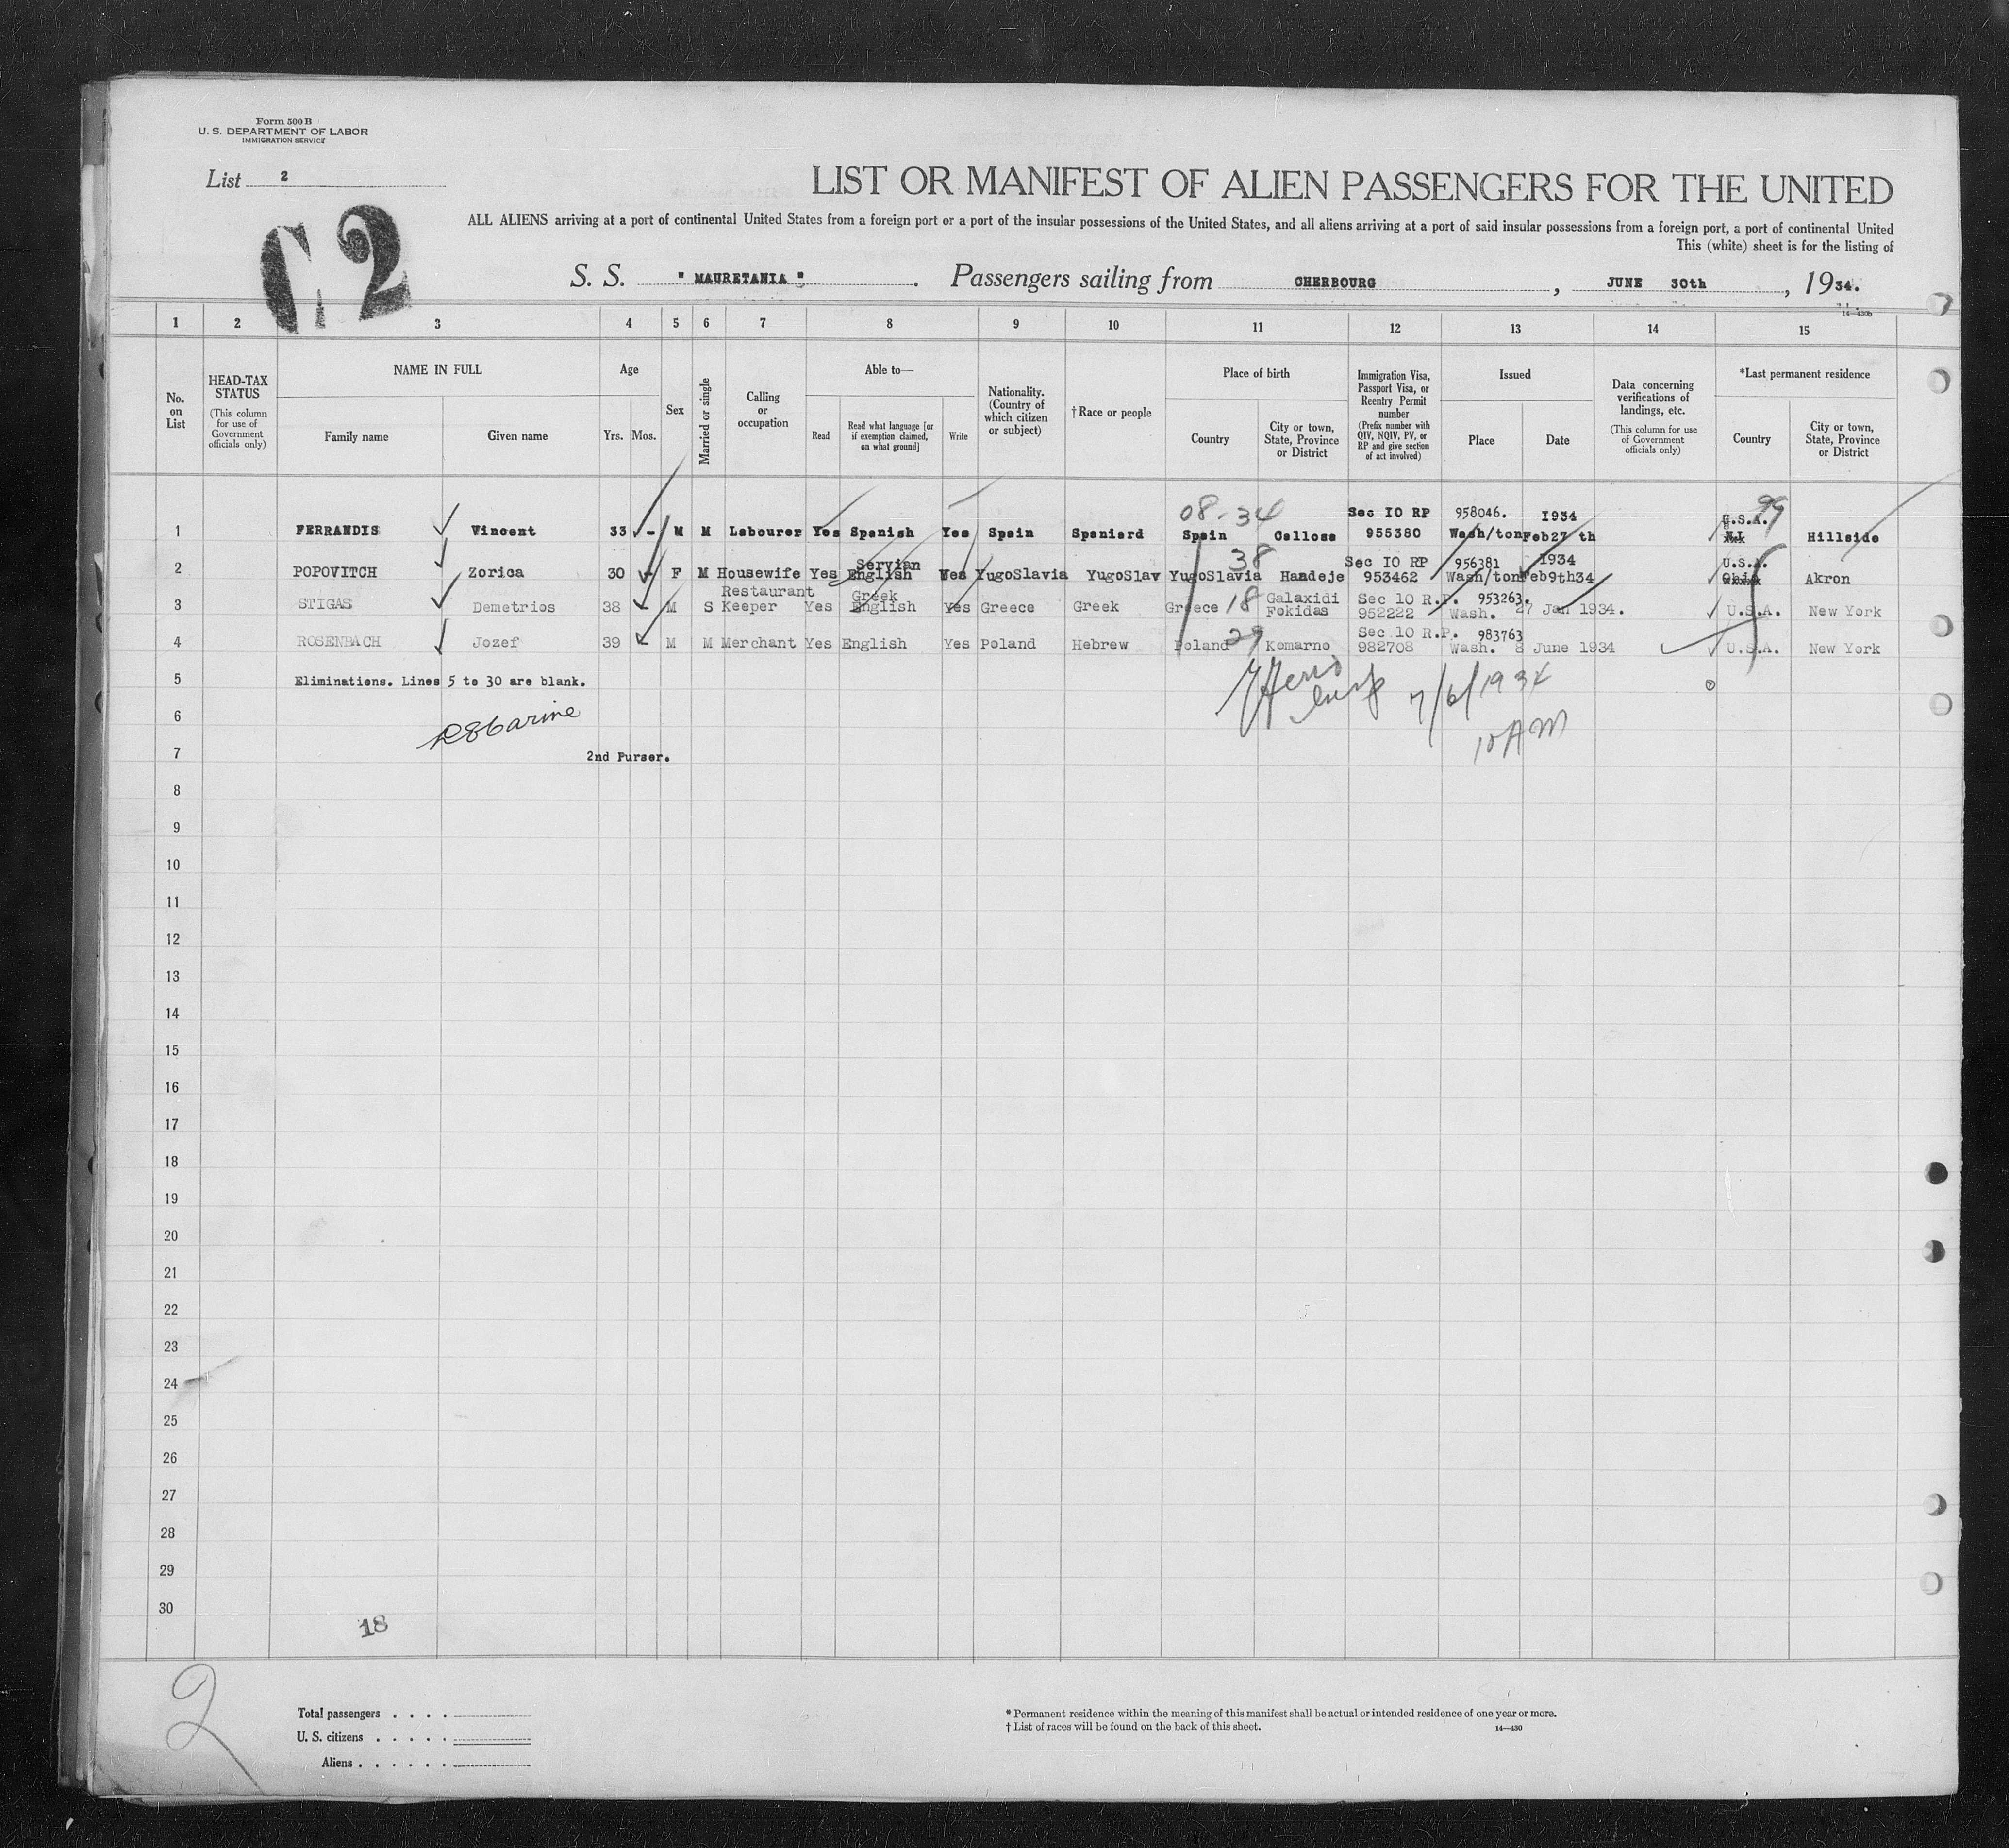 Form 500 B
U. S. DEPARTMENT OF LABOR
IMMIGRATION SERVICE
List 2
C 2
LIST OR MANIFEST OF ALIEN PASSENGERS FOR THE UNITED
ALL ALIENS arriving at a port of continental United States from a foreign port or a port of the insular possessions of the United States, and all aliens arriving at a port of said insular possessions from a foreign port, a port of continental United
This (white) sheet is for the listing of
S. S. " MAURETANIA " . Passengers sailing from CHERBOURG , JUNE 30th , 1934.
1 2 3 4 5 6 7 8 9 10 11 12 13 14 15
No. on List
HEAD-TAX STATUS
(This column for use of Government officials only)
NAME IN FULL
Family name Given name
Age
Yrs. Mos.
Sex
Married or single
Calling or occupation
Able to—
Read
Read what language [or if exemption claimed, on what ground]
Write
Nationality. (Country of which citizen or subject)
†Race or people
Place of birth
Country
City or town, State, Province or District
Immigration Visa, Passport Visa, or Reentry Permit number
(Prefix number with QIV, NQIV, PV, or RP and give section of act involved)
Issued
Place Date
Data concerning verifications of landings, etc.
(This column for use of Government officials only)
*Last permanent residence
Country
City or town, State, Province or District
08-34 Sec IO RP 958046. I934 U.S.A. 99
1 FERRANDIS Vincent 33 - M M Labourer Yes Spanish Yes Spain Spaniard Spain Callosa 955380 Wash/ton Feb27 th NJ Hillside
Servian 38 Sec IO RP 956381 I934 U.S.A.
2 POPOVITCH Zorica 30 - F M Housewife Yes English Yes YugoSlavia YugoSlav YugoSlavia Handeje 953462 Wash/ton Feb9th34 Ohio Akron
Restaurant Greek Galaxidi Sec 10 R.P. 953263.
3 STIGAS Demetrios 38 M S Keeper Yes English Yes Greece Greek Greece 18 Fokidas 952222 Wash. 27 Jan 1934. U.S.A. New York
Sec 10 R.P. 983763
4 ROSENBACH Jozef 39 M M Merchant Yes English Yes Poland Hebrew Poland 29 Komarno 982708 Wash. 8 June 1934 U.S.A. New York
5 Eliminations. Lines 5 to 30 are blank.
7/6/1934
6
10 AM
7 2nd Purser.
8
9
10
11
12
13
14
15
16
17
18
19
20
21
22
23
24
25
26
27
28
29
30
18
2
Total passengers . . . .
U. S. citizens . . . . .
Aliens . . . . . .
* Permanent residence within the meaning of this manifest shall be actual or intended residence of one year or more.
† List of races will be found on the back of this sheet.
14—430